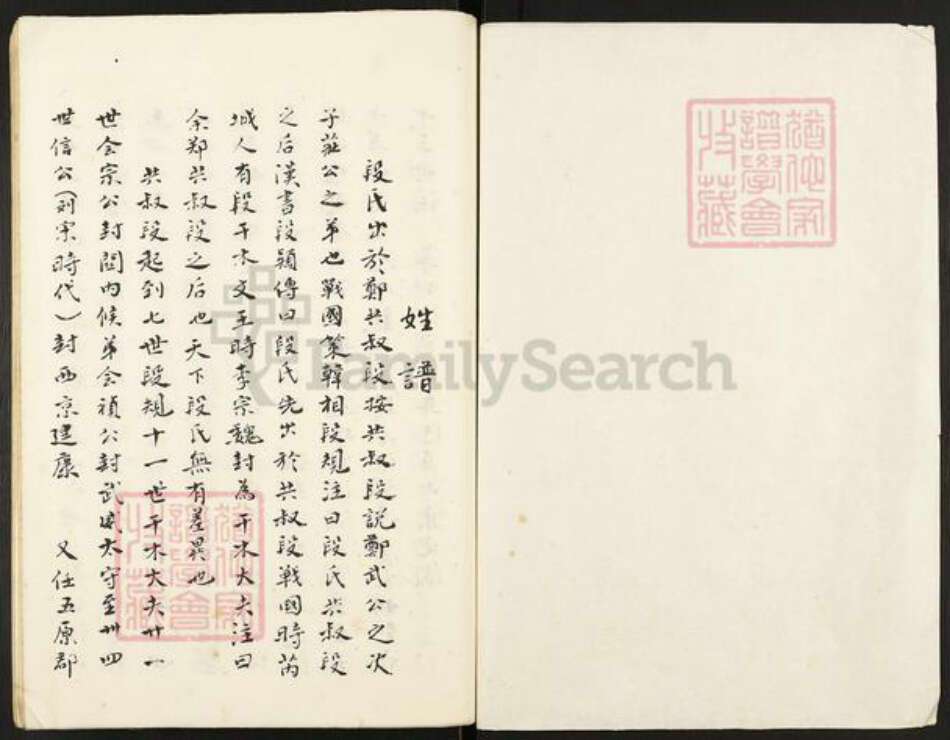 姓譜
段氏出於鄭共叔段按共叔段説鄭武公之次
子莊公之弟也戰國策韓相段規注曰段氏共叔段
之后漢書段頴傳曰段氏先出於共叔段戰國時芮
城人有段干木文王時李宗魏封為干木大夫注曰
余郑共叔段之后也天下段氏無有差異也
共叔段起到七世段規十一世干木大夫廿一
世会宗公封関內候弟会禎公封武威太守至卅四
世信公(刘宋時代)封西京建康 又任五原郡
猶他家
譜學會
收藏
猶他家
譜學會
收藏
FamilySearch